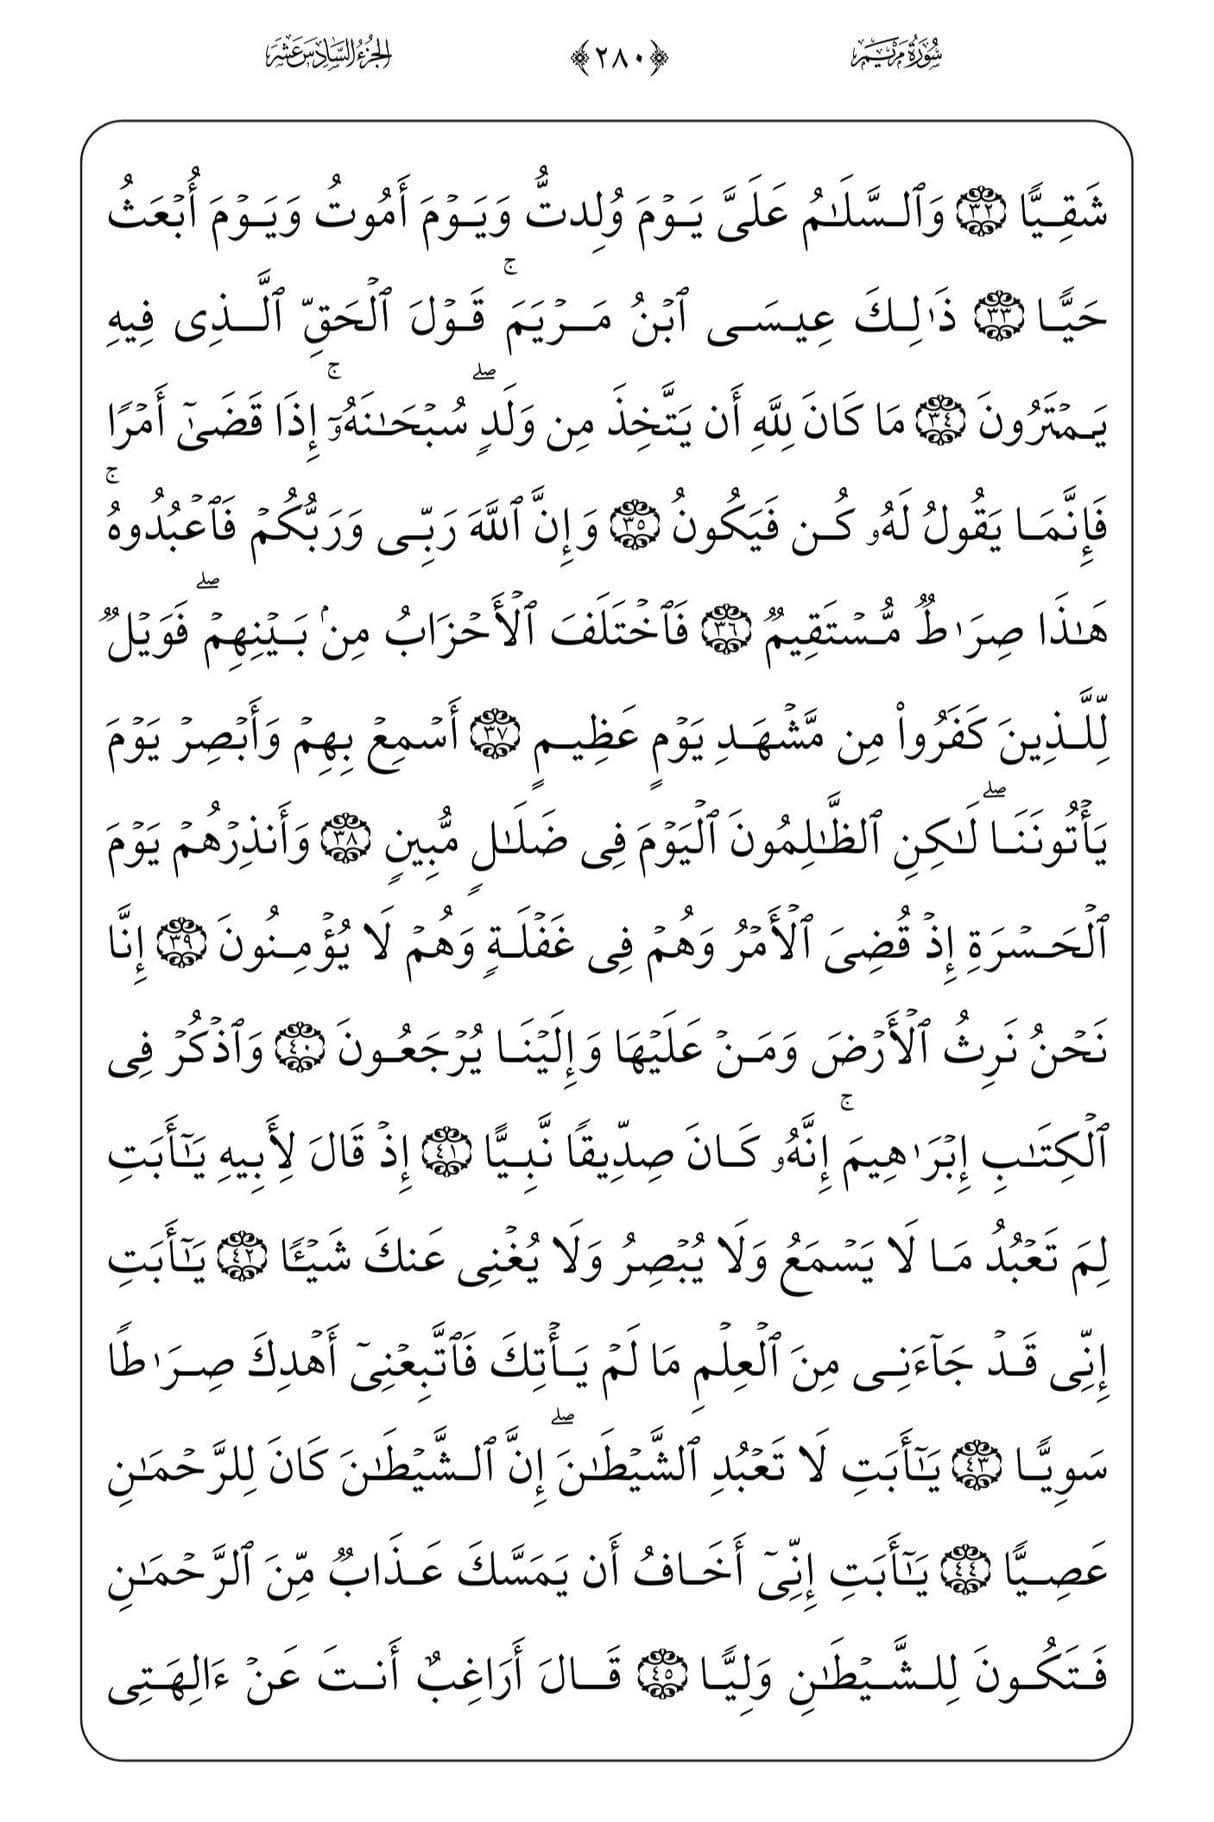 سُورَةُ مَرْيَم ﴿٢٨٠﴾ الجُزْءُ السَّادِسَ عَشَرَ
شَقِيًّا ٣٢ وَٱلسَّلَٰمُ عَلَىَّ يَوْمَ وُلِدتُّ وَيَوْمَ أَمُوتُ وَيَوْمَ أُبْعَثُ
حَيًّا ٣٣ ذَٰلِكَ عِيسَى ٱبْنُ مَرْيَمَ ۚ قَوْلَ ٱلْحَقِّ ٱلَّذِى فِيهِ
يَمْتَرُونَ ٣٤ مَا كَانَ لِلَّهِ أَن يَتَّخِذَ مِن وَلَدٍ ۖ سُبْحَٰنَهُۥٓ ۚ إِذَا قَضَىٰٓ أَمْرًا
فَإِنَّمَا يَقُولُ لَهُۥ كُن فَيَكُونُ ٣٥ وَإِنَّ ٱللَّهَ رَبِّى وَرَبُّكُمْ فَٱعْبُدُوهُ ۚ
هَٰذَا صِرَٰطٌ مُّسْتَقِيمٌ ٣٦ فَٱخْتَلَفَ ٱلْأَحْزَابُ مِنۢ بَيْنِهِمْ ۖ فَوَيْلٌ
لِّلَّذِينَ كَفَرُوا۟ مِن مَّشْهَدِ يَوْمٍ عَظِيمٍ ٣٧ أَسْمِعْ بِهِمْ وَأَبْصِرْ يَوْمَ
يَأْتُونَنَا ۖ لَٰكِنِ ٱلظَّٰلِمُونَ ٱلْيَوْمَ فِى ضَلَٰلٍ مُّبِينٍ ٣٨ وَأَنذِرْهُمْ يَوْمَ
ٱلْحَسْرَةِ إِذْ قُضِىَ ٱلْأَمْرُ وَهُمْ فِى غَفْلَةٍ وَهُمْ لَا يُؤْمِنُونَ ٣٩ إِنَّا
نَحْنُ نَرِثُ ٱلْأَرْضَ وَمَنْ عَلَيْهَا وَإِلَيْنَا يُرْجَعُونَ ٤٠ وَٱذْكُرْ فِى
ٱلْكِتَٰبِ إِبْرَٰهِيمَ ۚ إِنَّهُۥ كَانَ صِدِّيقًا نَّبِيًّا ٤١ إِذْ قَالَ لِأَبِيهِ يَٰٓأَبَتِ
لِمَ تَعْبُدُ مَا لَا يَسْمَعُ وَلَا يُبْصِرُ وَلَا يُغْنِى عَنكَ شَيْـًٔا ٤٢ يَٰٓأَبَتِ
إِنِّى قَدْ جَآءَنِى مِنَ ٱلْعِلْمِ مَا لَمْ يَأْتِكَ فَٱتَّبِعْنِىٓ أَهْدِكَ صِرَٰطًا
سَوِيًّا ٤٣ يَٰٓأَبَتِ لَا تَعْبُدِ ٱلشَّيْطَٰنَ ۖ إِنَّ ٱلشَّيْطَٰنَ كَانَ لِلرَّحْمَٰنِ
عَصِيًّا ٤٤ يَٰٓأَبَتِ إِنِّىٓ أَخَافُ أَن يَمَسَّكَ عَذَابٌ مِّنَ ٱلرَّحْمَٰنِ
فَتَكُونَ لِلشَّيْطَٰنِ وَلِيًّا ٤٥ قَالَ أَرَاغِبٌ أَنتَ عَنْ ءَالِهَتِى